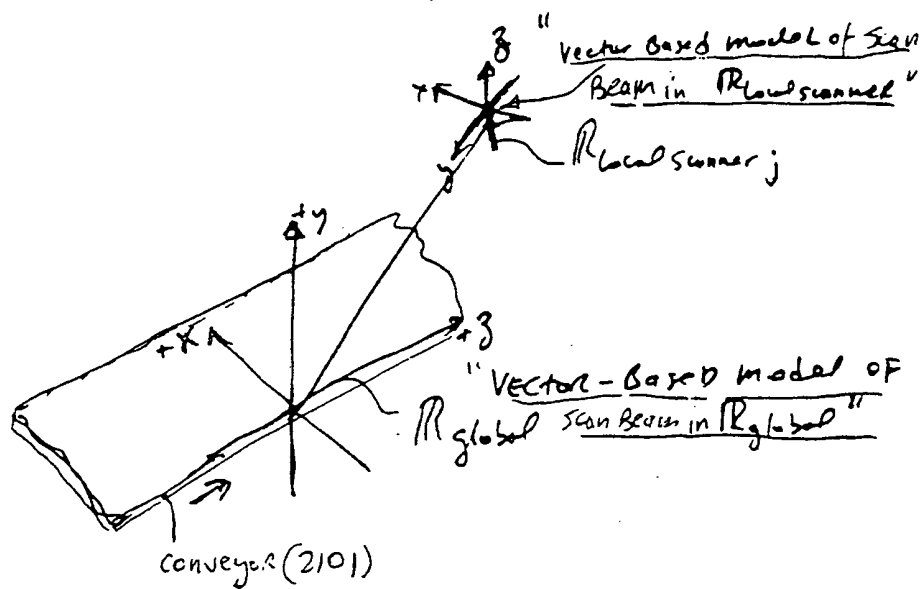 "
Vector Based model of Scan
Beam in ℝlocal scanner"
z
+x
ℝlocal scanner j
y
+y
+x
+z
"Vector-Based model of
Scan Beam in ℝglobal"
ℝglobal
conveyor (2101)